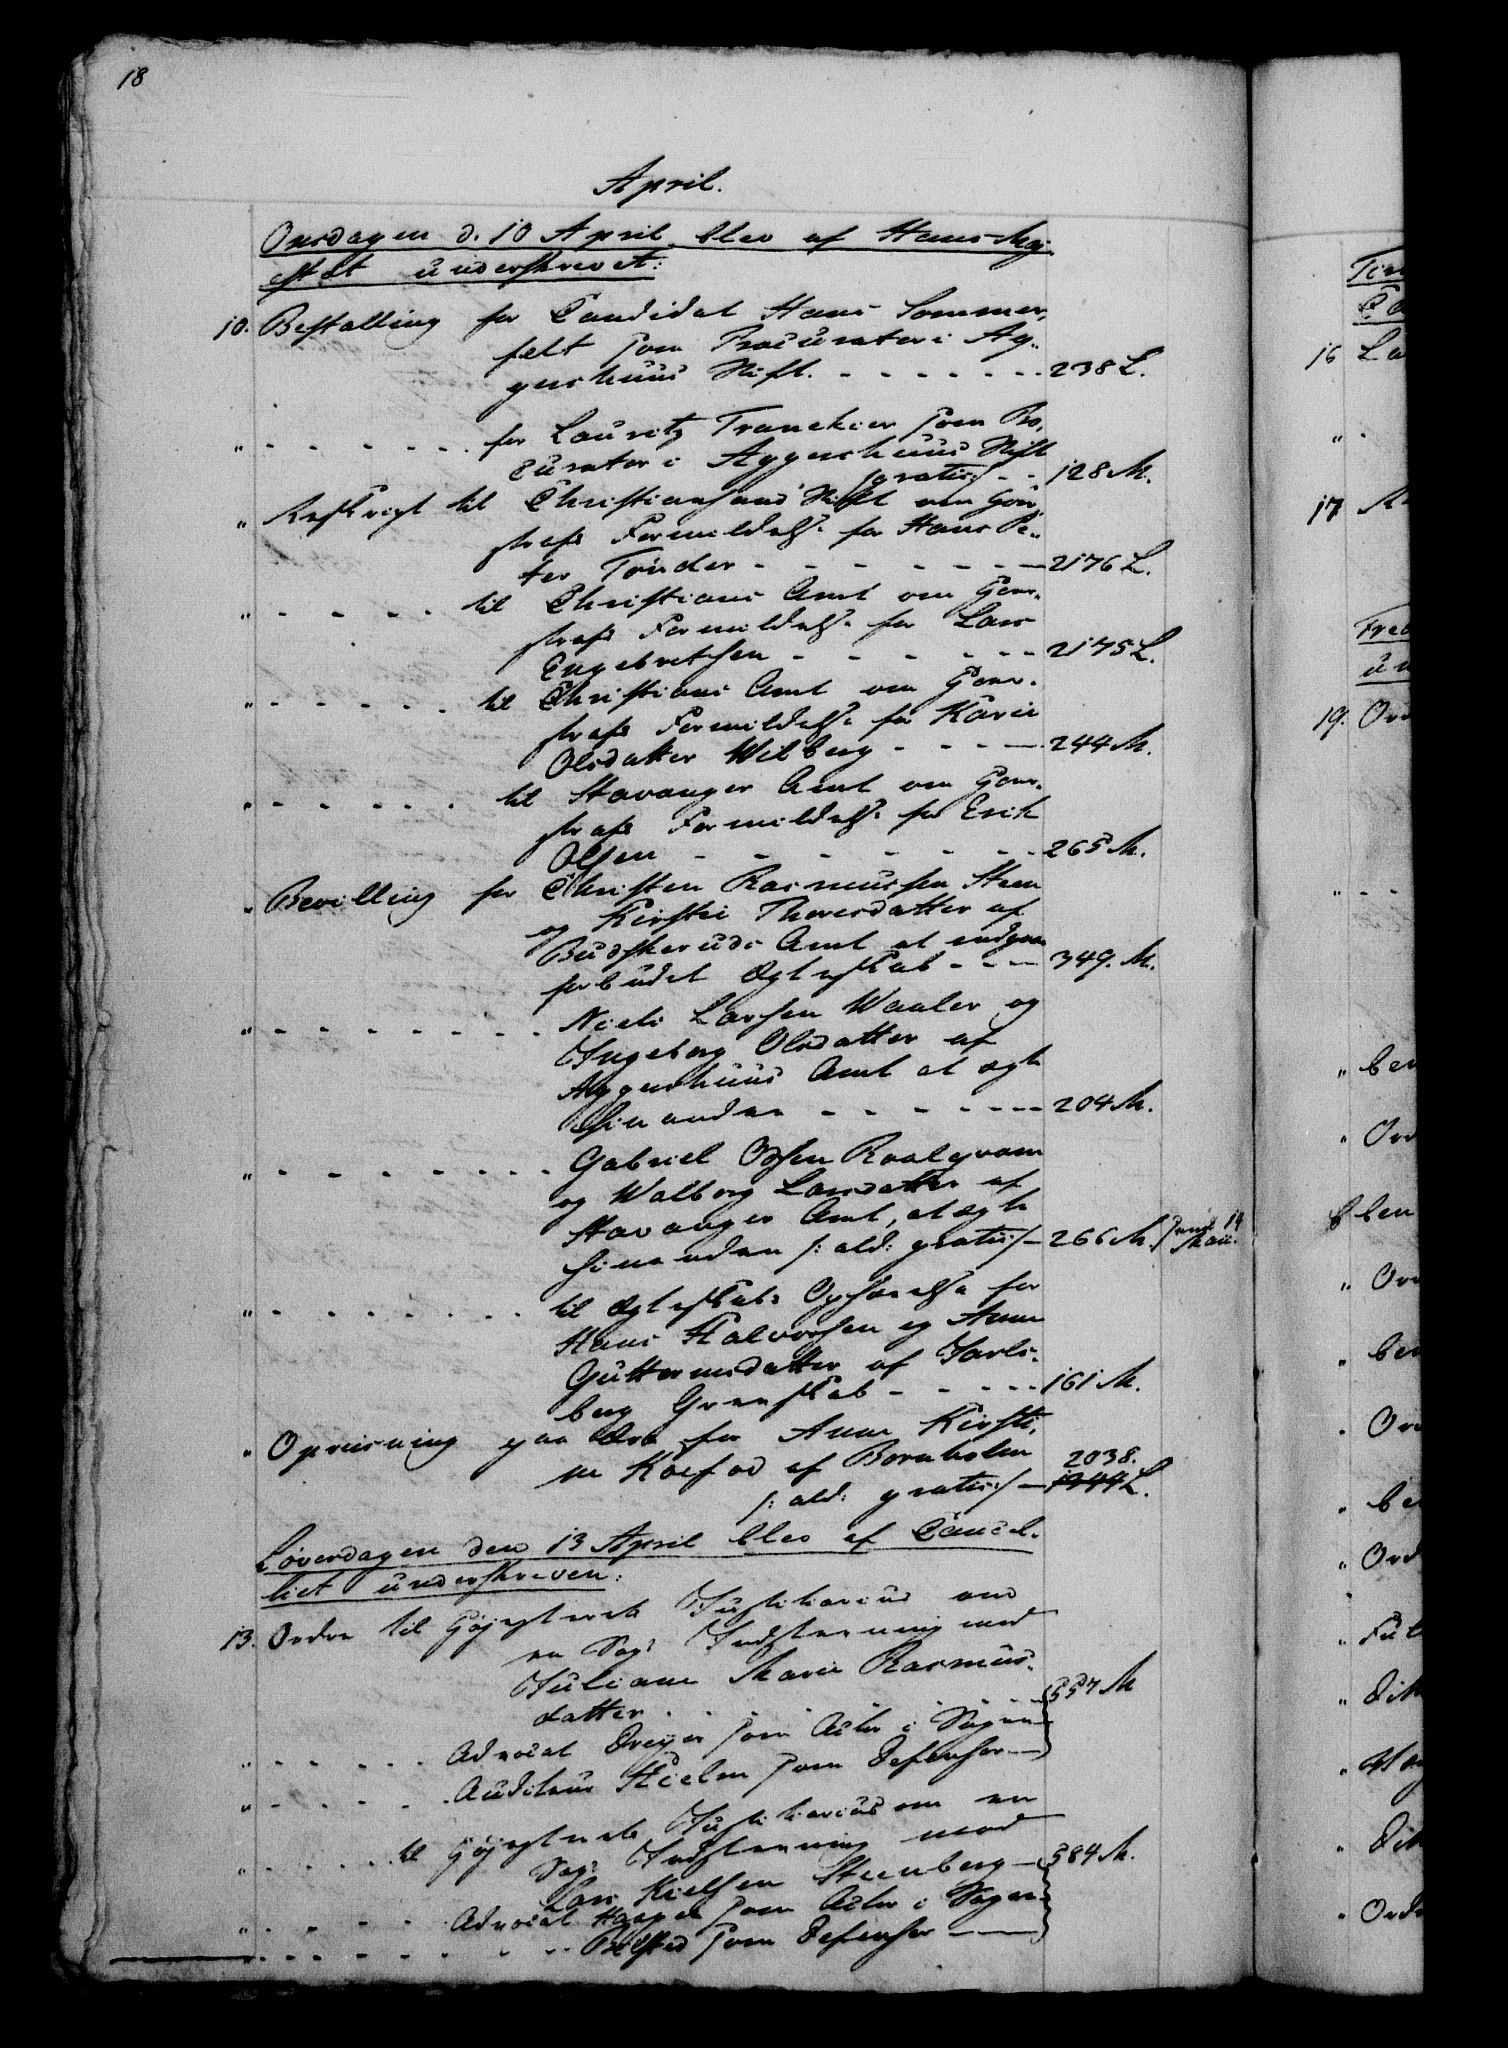 18
April.
Onsdagen d. 10 April blev af Hans Maj-
estæt underskrevet:
10. Bestalling for Candidat Hans Sommer-
felt som Procurator i Ag-
gershuus Stift. - - - - - - - 238 L.
" - - - - - - for Lauritz Tranekier som Pro-
curator i Aggershuus Stift
/gratis/ - - 128 M.
" Reskript til Christiansands Stift om Gour-
strafs Formildelse for Hans Pe-
ter Tønder - - - - - - - 2176 L.
" - - - - til Christians Amt om Gour-
strafs Formildelse for Lars
Engebretsen - - - - - - 2175 L.
" - - - - - til Christians Amt om Gour-
strafs Formildelse for Karie
Olsdatter Wilberg - - - - 244 M.
" - - - - - - til Stavanger Amt om Gour-
strafs Formildelse for Erik
Olsen - - - - - - - 265 M.
" Bevilling for Christen Rasmussen Steen
og Kirstie Thoresdatter af
Budskeruds Amt at indgaae
forbudet Ægteskab - - - 349. M.
" - - - - - - - - Niels Larsen Waaler og
Ingeborg Olsdatter af
Aggershuus Amt at ægte
hinanden - - - - - - - 204 M.
" - - - - - - - - Gabriel Osen
og Walborg Larsdatter af
Stavanger Amt, at ægte
hinanden /: ald: gratis/ - 266 M.
" - - - - - - - til Ægteskabs Ophævelse for
Hans Halvorsen og Anne
Guttormsdatter af Jarls-
berg Grevskab - - - - - 161 M.
" Opreisning paa Ære for Anne Kirsti-
ne Koefod af Bornholm 2038.
/: ald: gratis:/ - 1944 L.
Løverdagen den 13 April blev af Cancel-
liet underskreven:
13. Ordre til Høiesterets Justitiarius om
en Sags Indstævning mod
Juliane Marie Rasmus-
datter - - - - - - 557 M
" - - - - - - Advocat Dreyer som Actor i Sagen
" - - - - - Auditeur Hielm som Defensor
" - - - - - til Høiesterets Justitiarius om en
Sags Indstævning mod
Lars Nielsen Steenberg - 584 M.
" - - - - - Advocat Haagen som Actor i Sagen
" - - - - - - - - som Defensor
16
17
19.